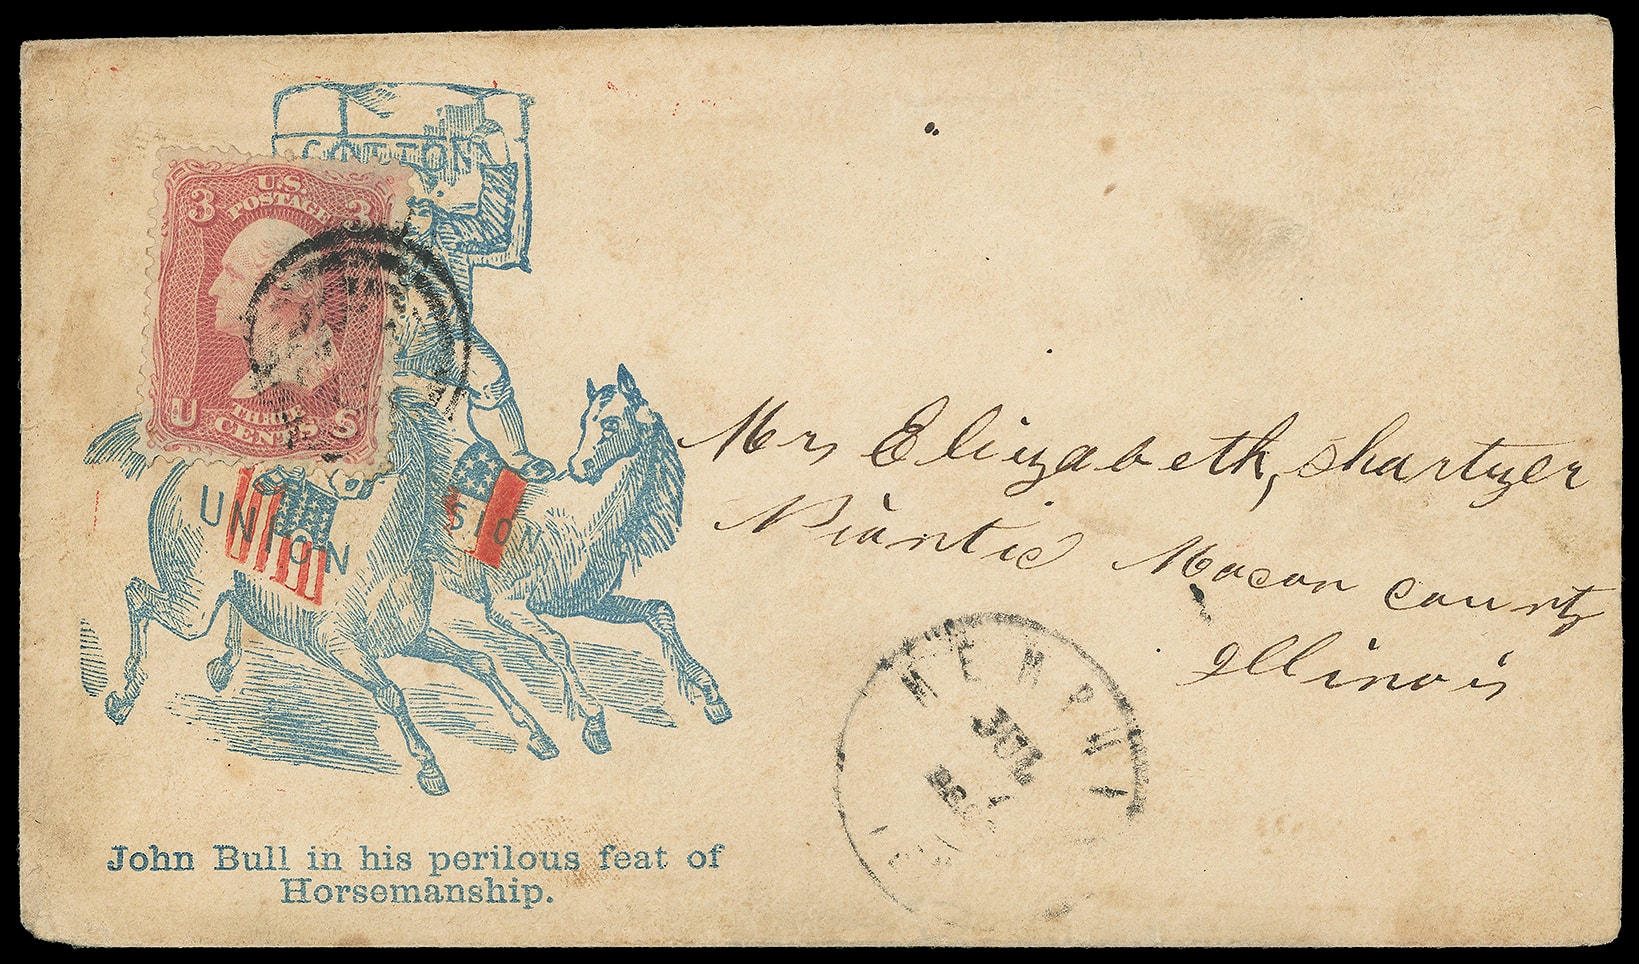 COTTON
3 U.S. POSTAGE 3
U THREE CENTS S
UNION
SION
Mrs Elizabeth, Shartzer
Niantic Macon County
Illinois
MEMPHI
JUL
John Bull in his perilous feat of
Horsemanship.